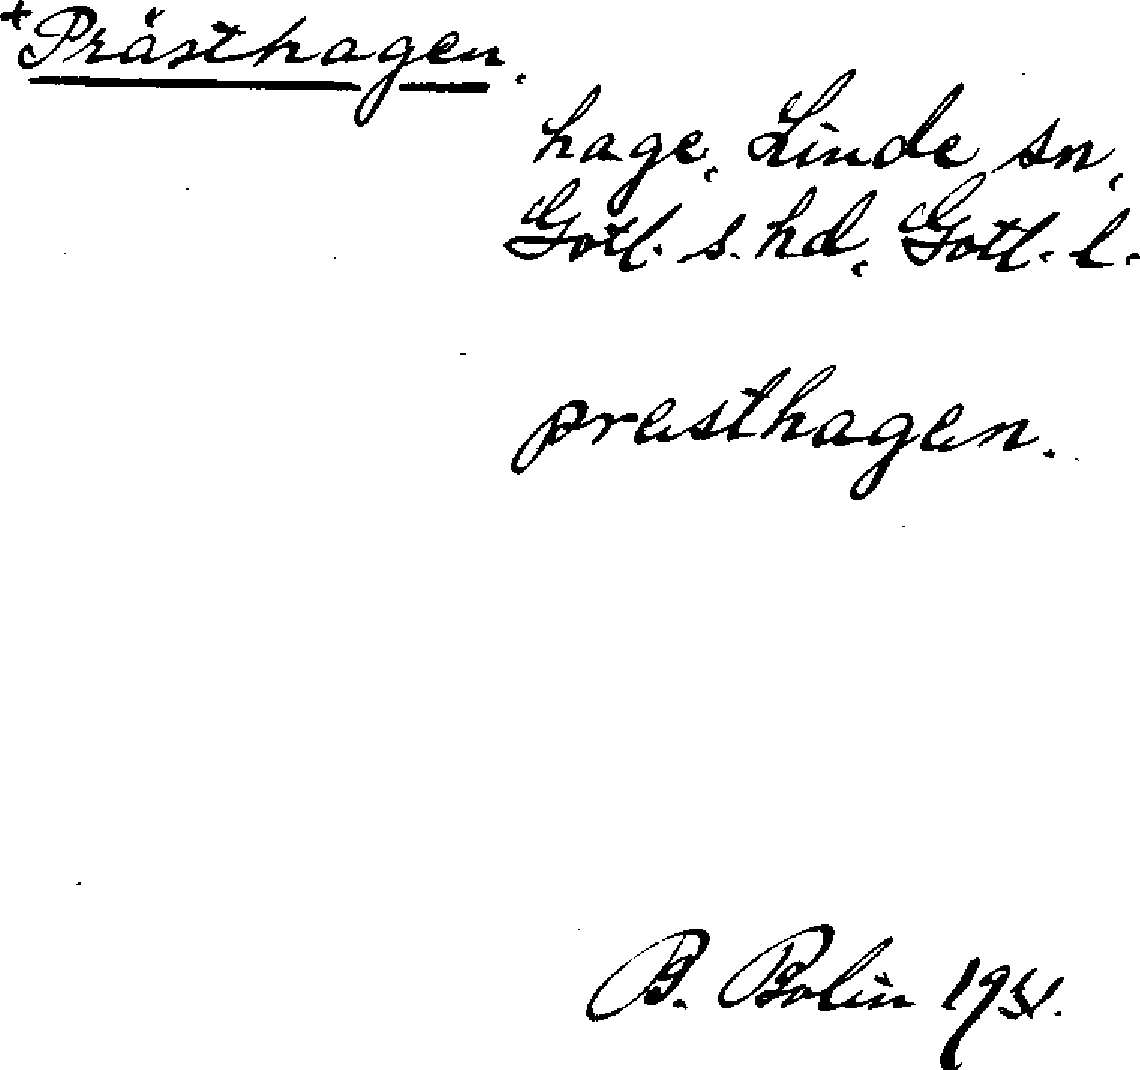 +Prästhagen.
hage, Linde sn,
Gotl. s. hd, Gotl. l.
præsthagæn.
B. Bolin 1931.